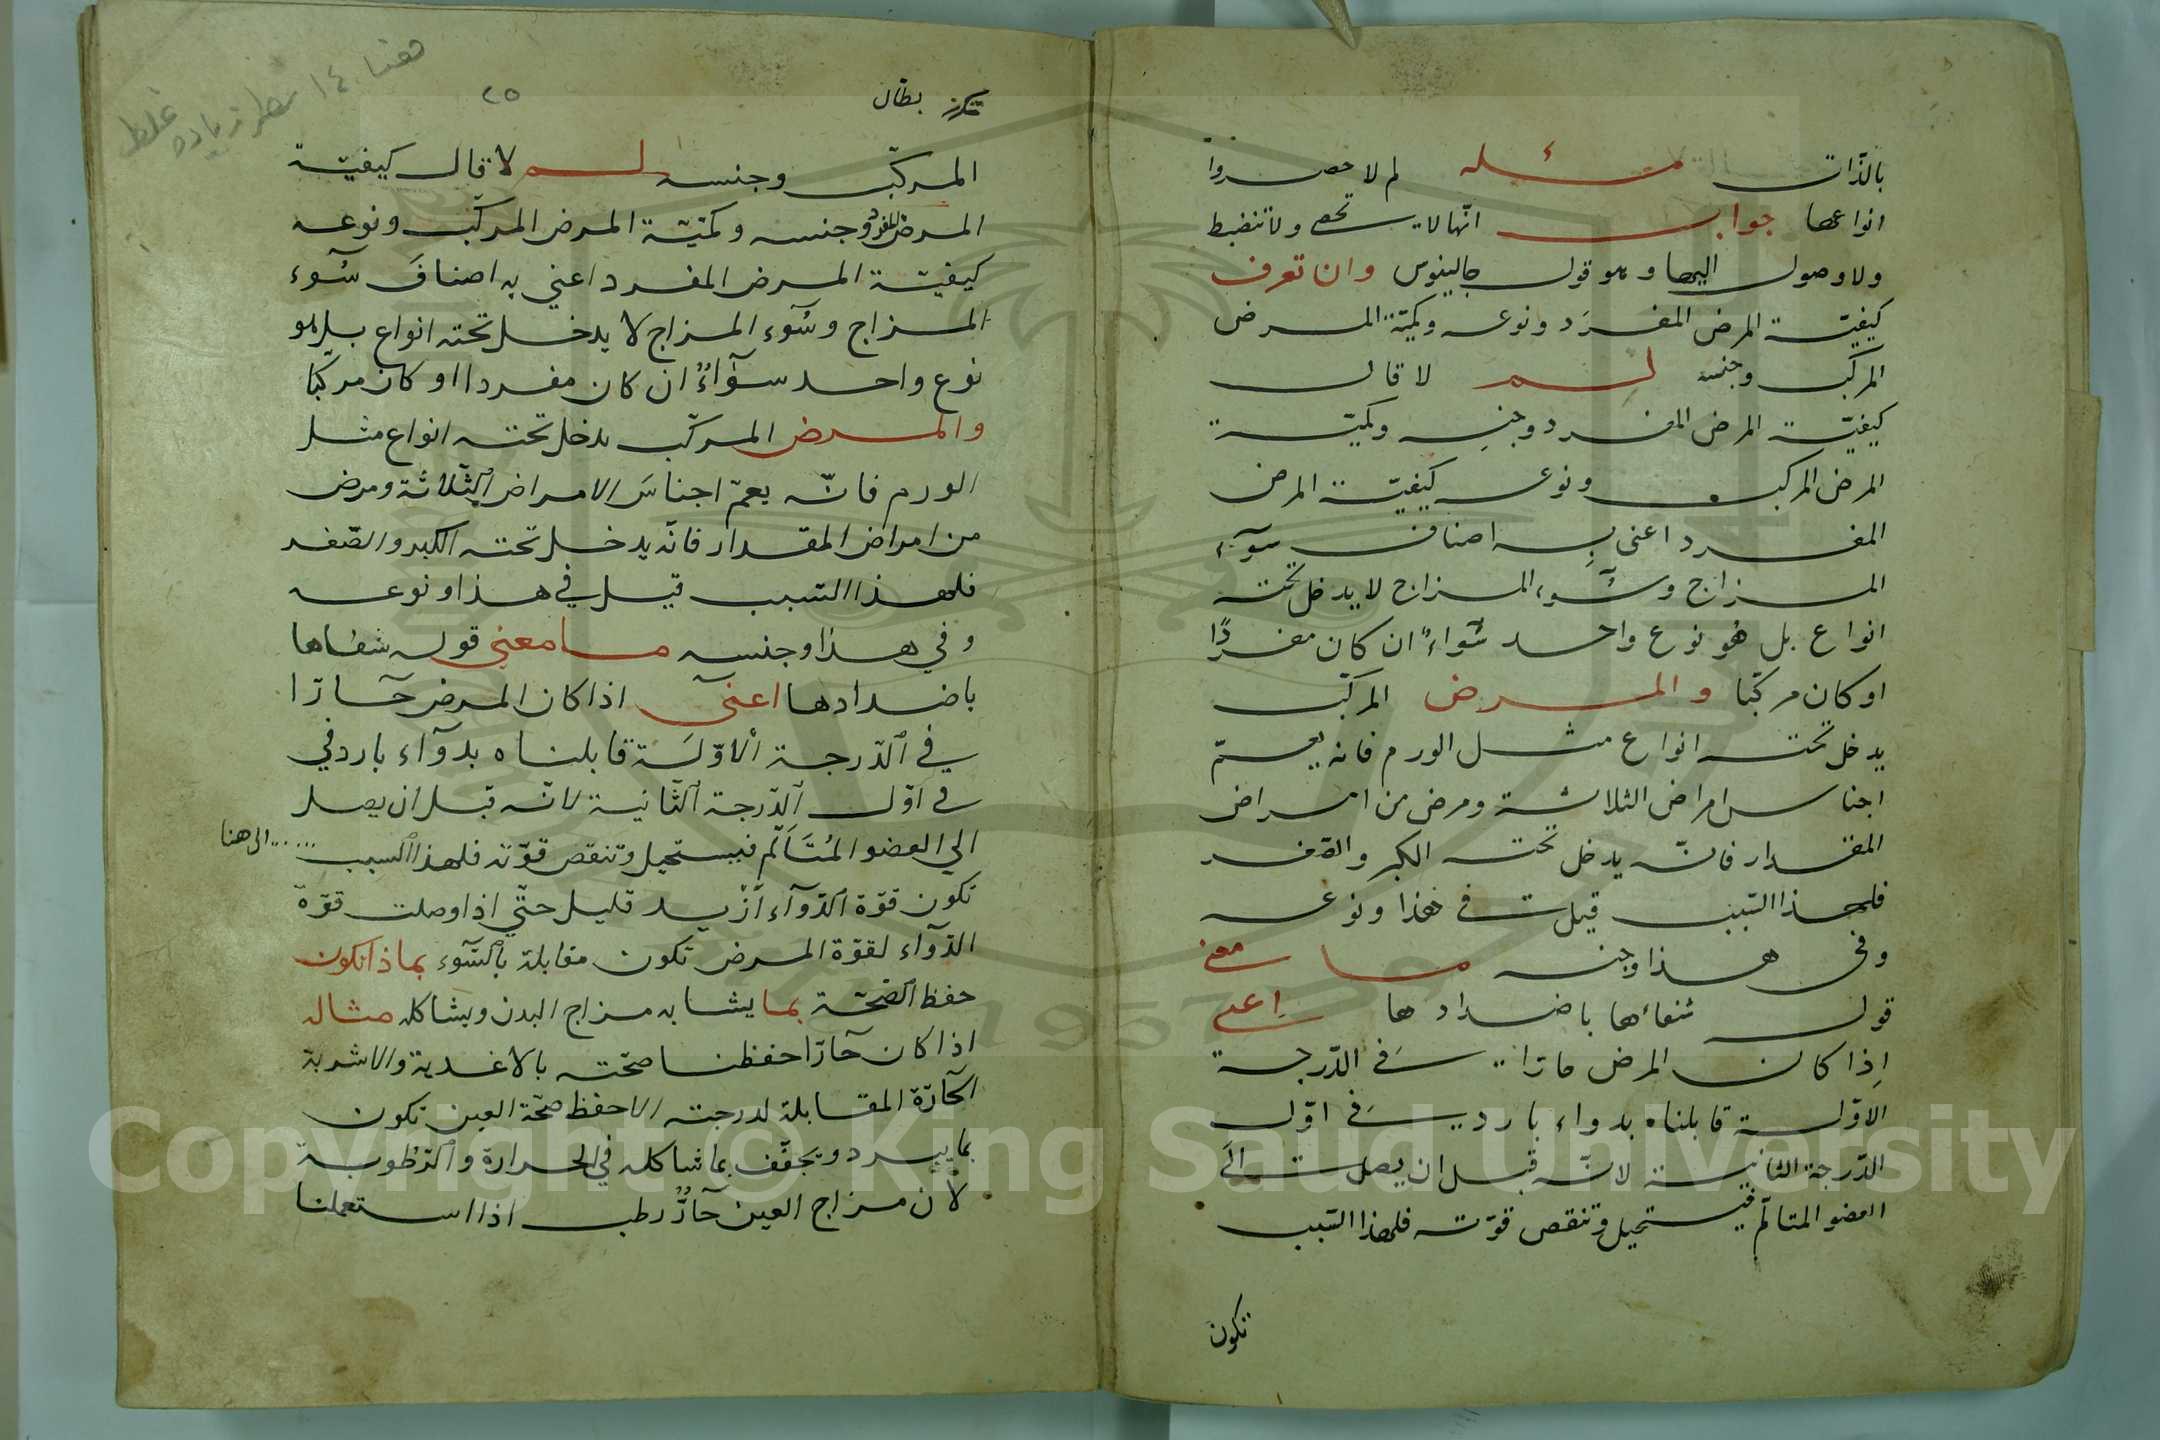 بالذّات مسئله لم لا حصروا
انواعها جواب انّها لا تحصى ولا تنضبط
ولا وصول اليها وهو قول جالينوس وان تعرف
كيفيّة المرض المفرَد ونوعه وكميّة المرض
المركّب وجنسه لم لا قال
كيفيّة المرض المفرد وجنسِه وكميّة
المرض المركب ونوعه كيفيّة المرض
المفرد اعنى بِه اصناف سوٓء
المزاج وسُوٓء المزاج لا يدخل تحته
انواع بل هُو نوع واحد سَواءٌ ان كان مفردًا
او كان مركّبا والمرض المركّب
يدخل تحته انواع مثل الورم فانه يعمّ
اجناس امراض الثلاثة ومرض من امراض
المقدار فانّه يدخل تحته الكبر والصّغر
فلهذا السّبب قيل فى هٰذا ونوعه
وفى هذا وجنسه ما معنى
قوله شفاءها باضدادها اعنى
اِذا كان المرض حارّا فَى الدّرجة
الاوّلة قابلناه بدواء بارد فَى اوّل
الدّرجة الثانية لانّه قبل ان يصل الَى
العضو المتالّم فيستحيل وتنقص قوّته فلهذا السّبب
تكون
هنا ١٤ سطر زياده غلط
٢٥
مكرر بطال
المركّب وجنسه لم لا قال كيفيّة
المرض المفرد وجنسه وكميّة المرض المركّب ونوعه
كيفيّة المرض المفرد اعني به اصنافَ سُوٓء
المزاج وسُوٓء المزاج لا يدخل تحته انواع بل هو
نوع واحد سوٓاءٌ ان كان مفردا او كان مركّبا
والمرض المركّب يدخل تحته انواع مثل
الورم فانّه يعمّ اجناسَ الامراض الثّلاثة ومرض
من امراض المقدار فانّه يدخل تحته الكبر والصّغر
فلهذا السّبب قيل في هذا ونوعه
وفي هذا وجنسه ما معنى قوله شفاها
باضدادها اعنى اذا كان المرض حآرّا
في الدّرجة الاوّلَة قابلناه بدوٓاء بارد في
في اوّل الدّرجة الثّانية لانّه قبل ان يصل
الي العضو المُتَاَلّم فيستحيل وتنقص قوّته فلهذا السبب ..... الى هنا
تكون قوّة الدّوٓاء اَزْيد قليل حتّي اذا وصلت قوّة
الدّوٓاء لقوّة المرض تكون مقابلة بالسّوٓء بماذا تكون
حفظ الصّحّة بما يشابه مزاج البدن ويشاكله مثاله
اذا كان حآرّا حفظنا صحّته بالاغدية والاشربة
الحآرّة المقابلة لدرجته الا حفظ صحّة العين تكون
بما يبرد ويجفّف بما شاكله في الحرارة والرّطوبة
لان مزاج العين حآرٌّ رطب اذا استعملنا